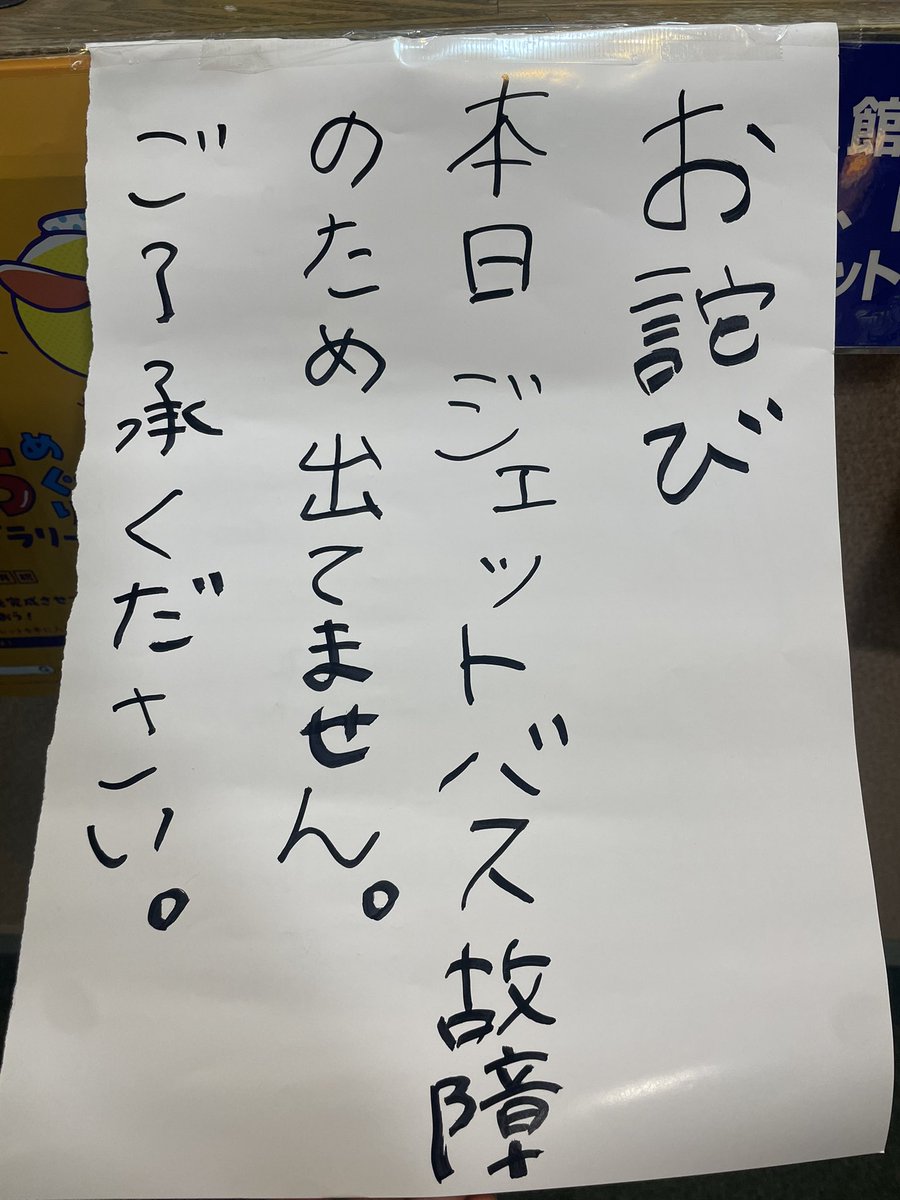 お詫び
本日ジェットバス故障
のため出てません。
ご了承ください。
館
ット
め
ぐ
ラリー